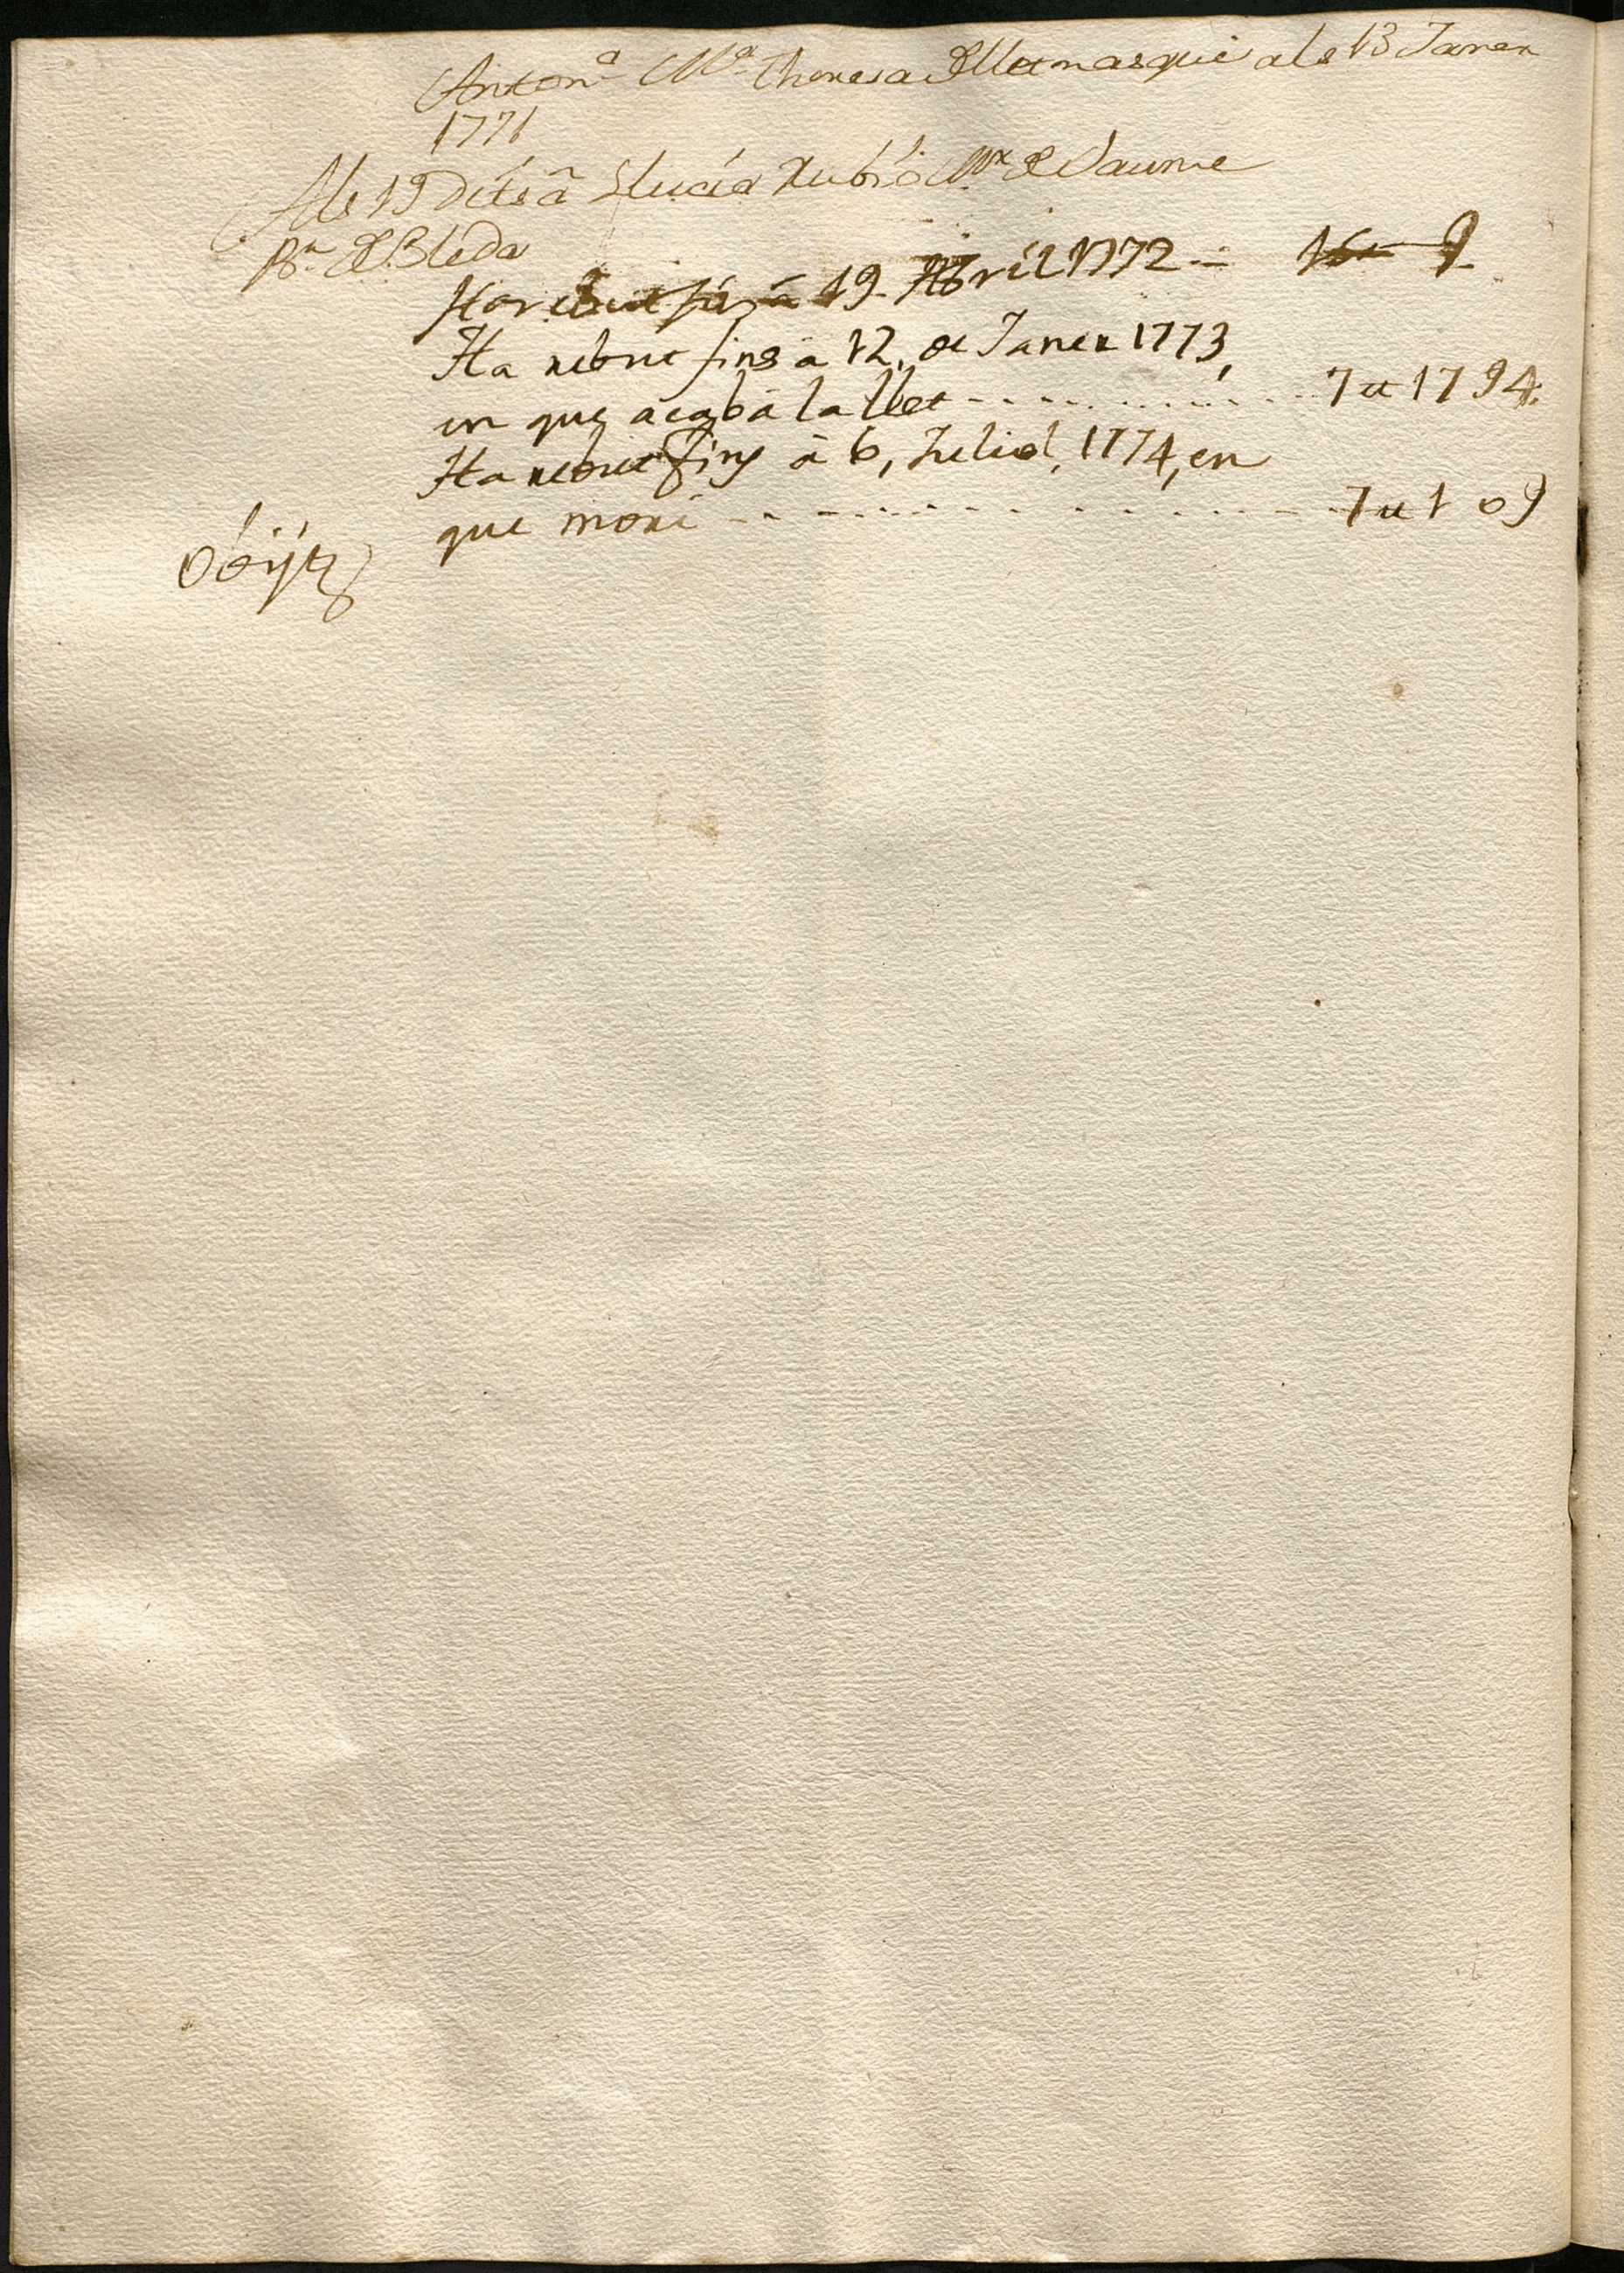 Anton.ª M.ª Theresa de Lletnasque als 13 Janer
1771
Als 19 Dits â Llucia Rubio M.r de Jaume
P.n de Bleda
Ha rebut fins â 19 Abril 1772 =
Ha rebut fins â 12, de Janer 1773,
en que acabâ la llet - - - - - - - - - 7 tt 17 9 4.
Ha rebut fins â 6, Juliol, 1774, en
que morí - - - - - - - - - - 7 tt 1 0 9
Obijt